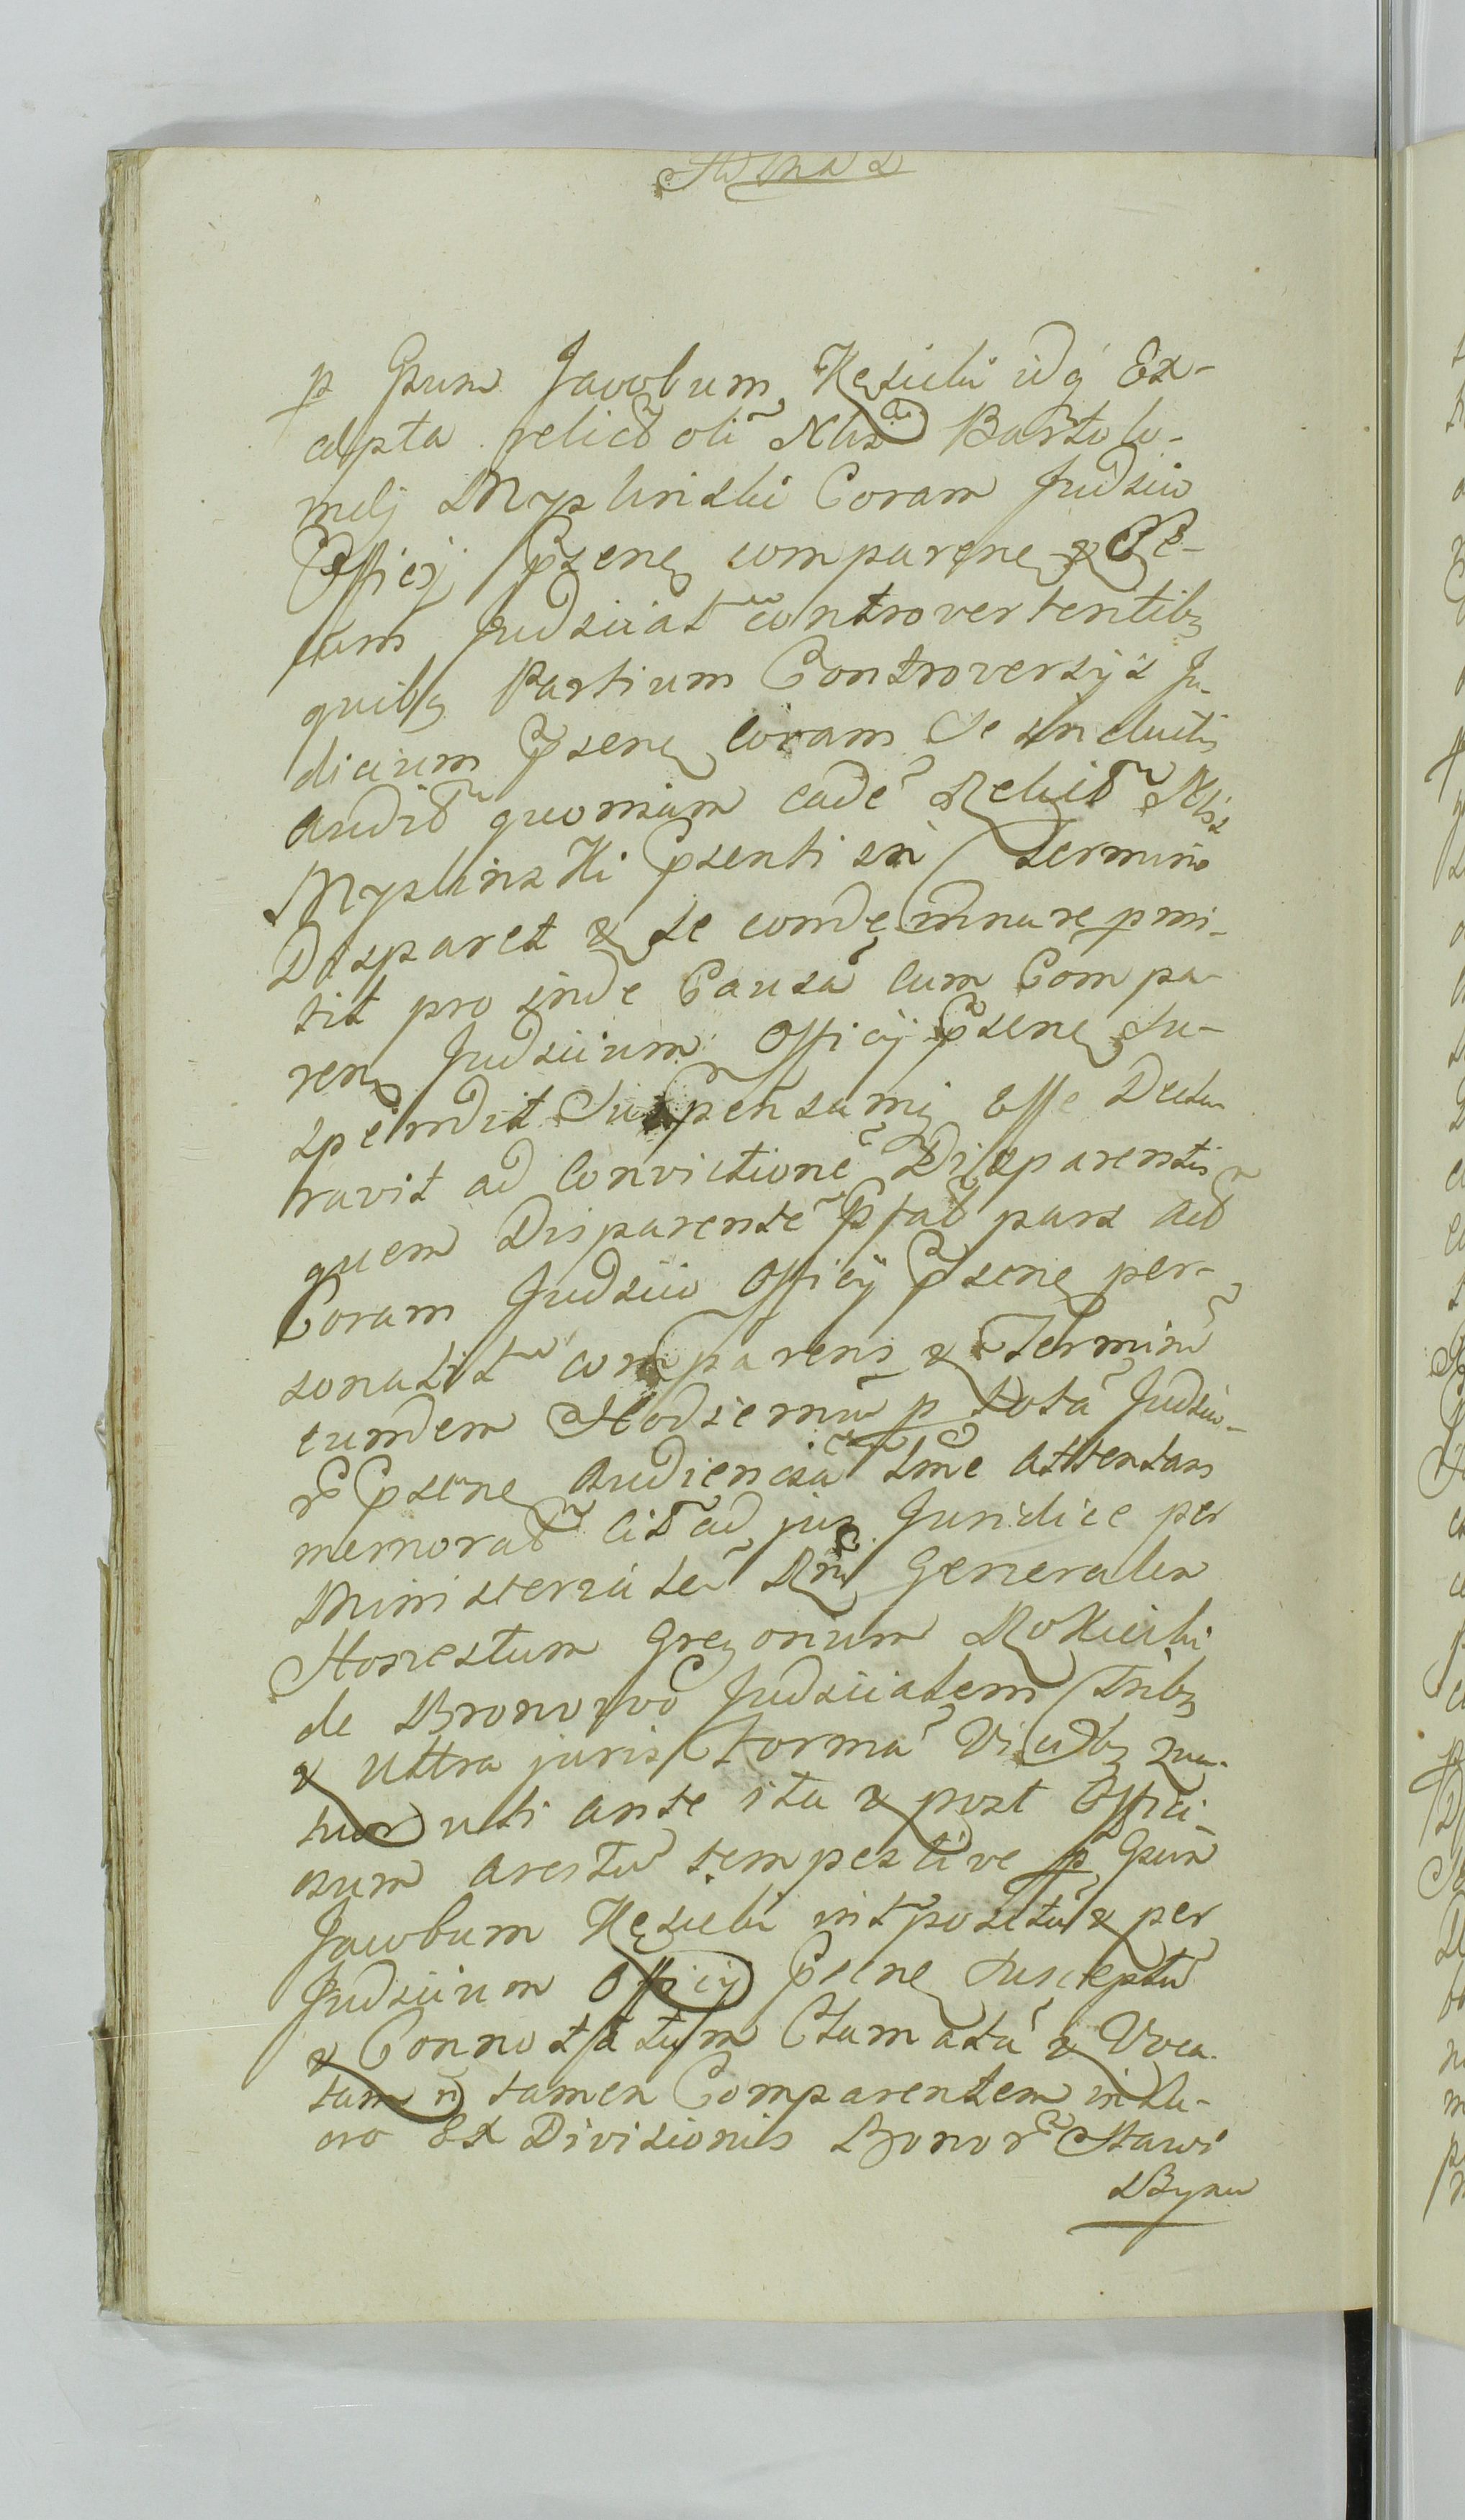 p Gsum Jacobum Kęsicki idq̃ Ex-
cepta relictã oli Nlis Bartolo-
mej Myslinski Coram Judicio
Officij Psene comparene &
cum Judicialr controvertentibz
quibz Partium Controversijs Ju-
dicium Psene coram se inductis
auditr quoniam eadẽ Relictr Nlis
Myslinski Psenti in termino
Disparet & se condẽmnare pmi-
tit pro inde Causã cum Compa-
rene Judicium Officij Psene Su-
spendit Suspensamq esse Decla
ravit ad Convictionẽ Disparentis
quem Disparentẽ Pfat pars act
Coram Judicio Officij Psene per-
sonalitr comparens & Terminũ
eundem Hodiernũ p totã Judicio-
r Psene Audienciã tme attentans
memoratr cit ad jus Juridice per
Ministerialẽ Rni Generalem
Honestum Gregorium Rokicki
de Bronowo Judicialem tribz
& Ultra juris formã Vicibz qua-
tuor uti ante ita & post Offici-
osum arestũ tempestive p Gsum
Jacobum Kęsicki intpositũ & per
Judicium Officij Psene Susceptũ
& Connotatum Clamatã & Voca-
tam ñ tamen Comparentem in Ca-
Ex Divisionis Bonor Stawi